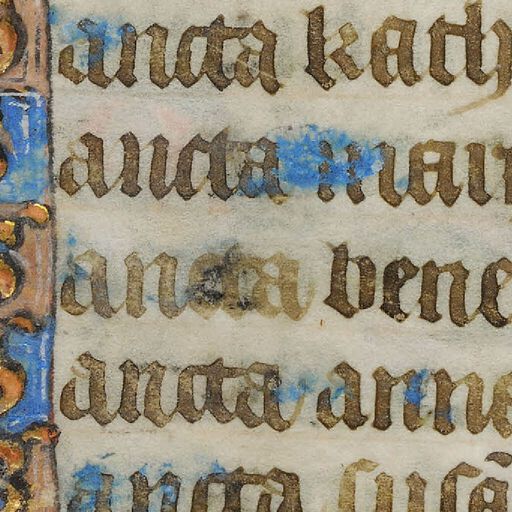 ancta kath
ancta mar
ancta bene
ancta anne
ancta susā